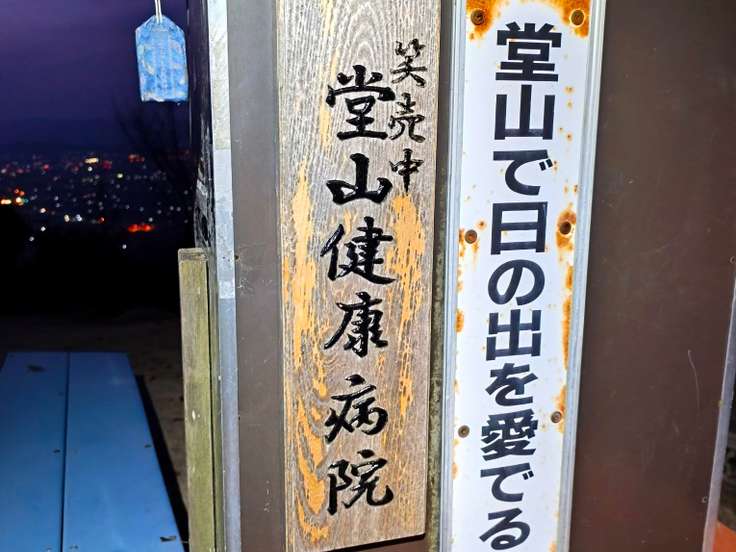 堂山で日の出を愛でる
笑売中
堂山健康病院